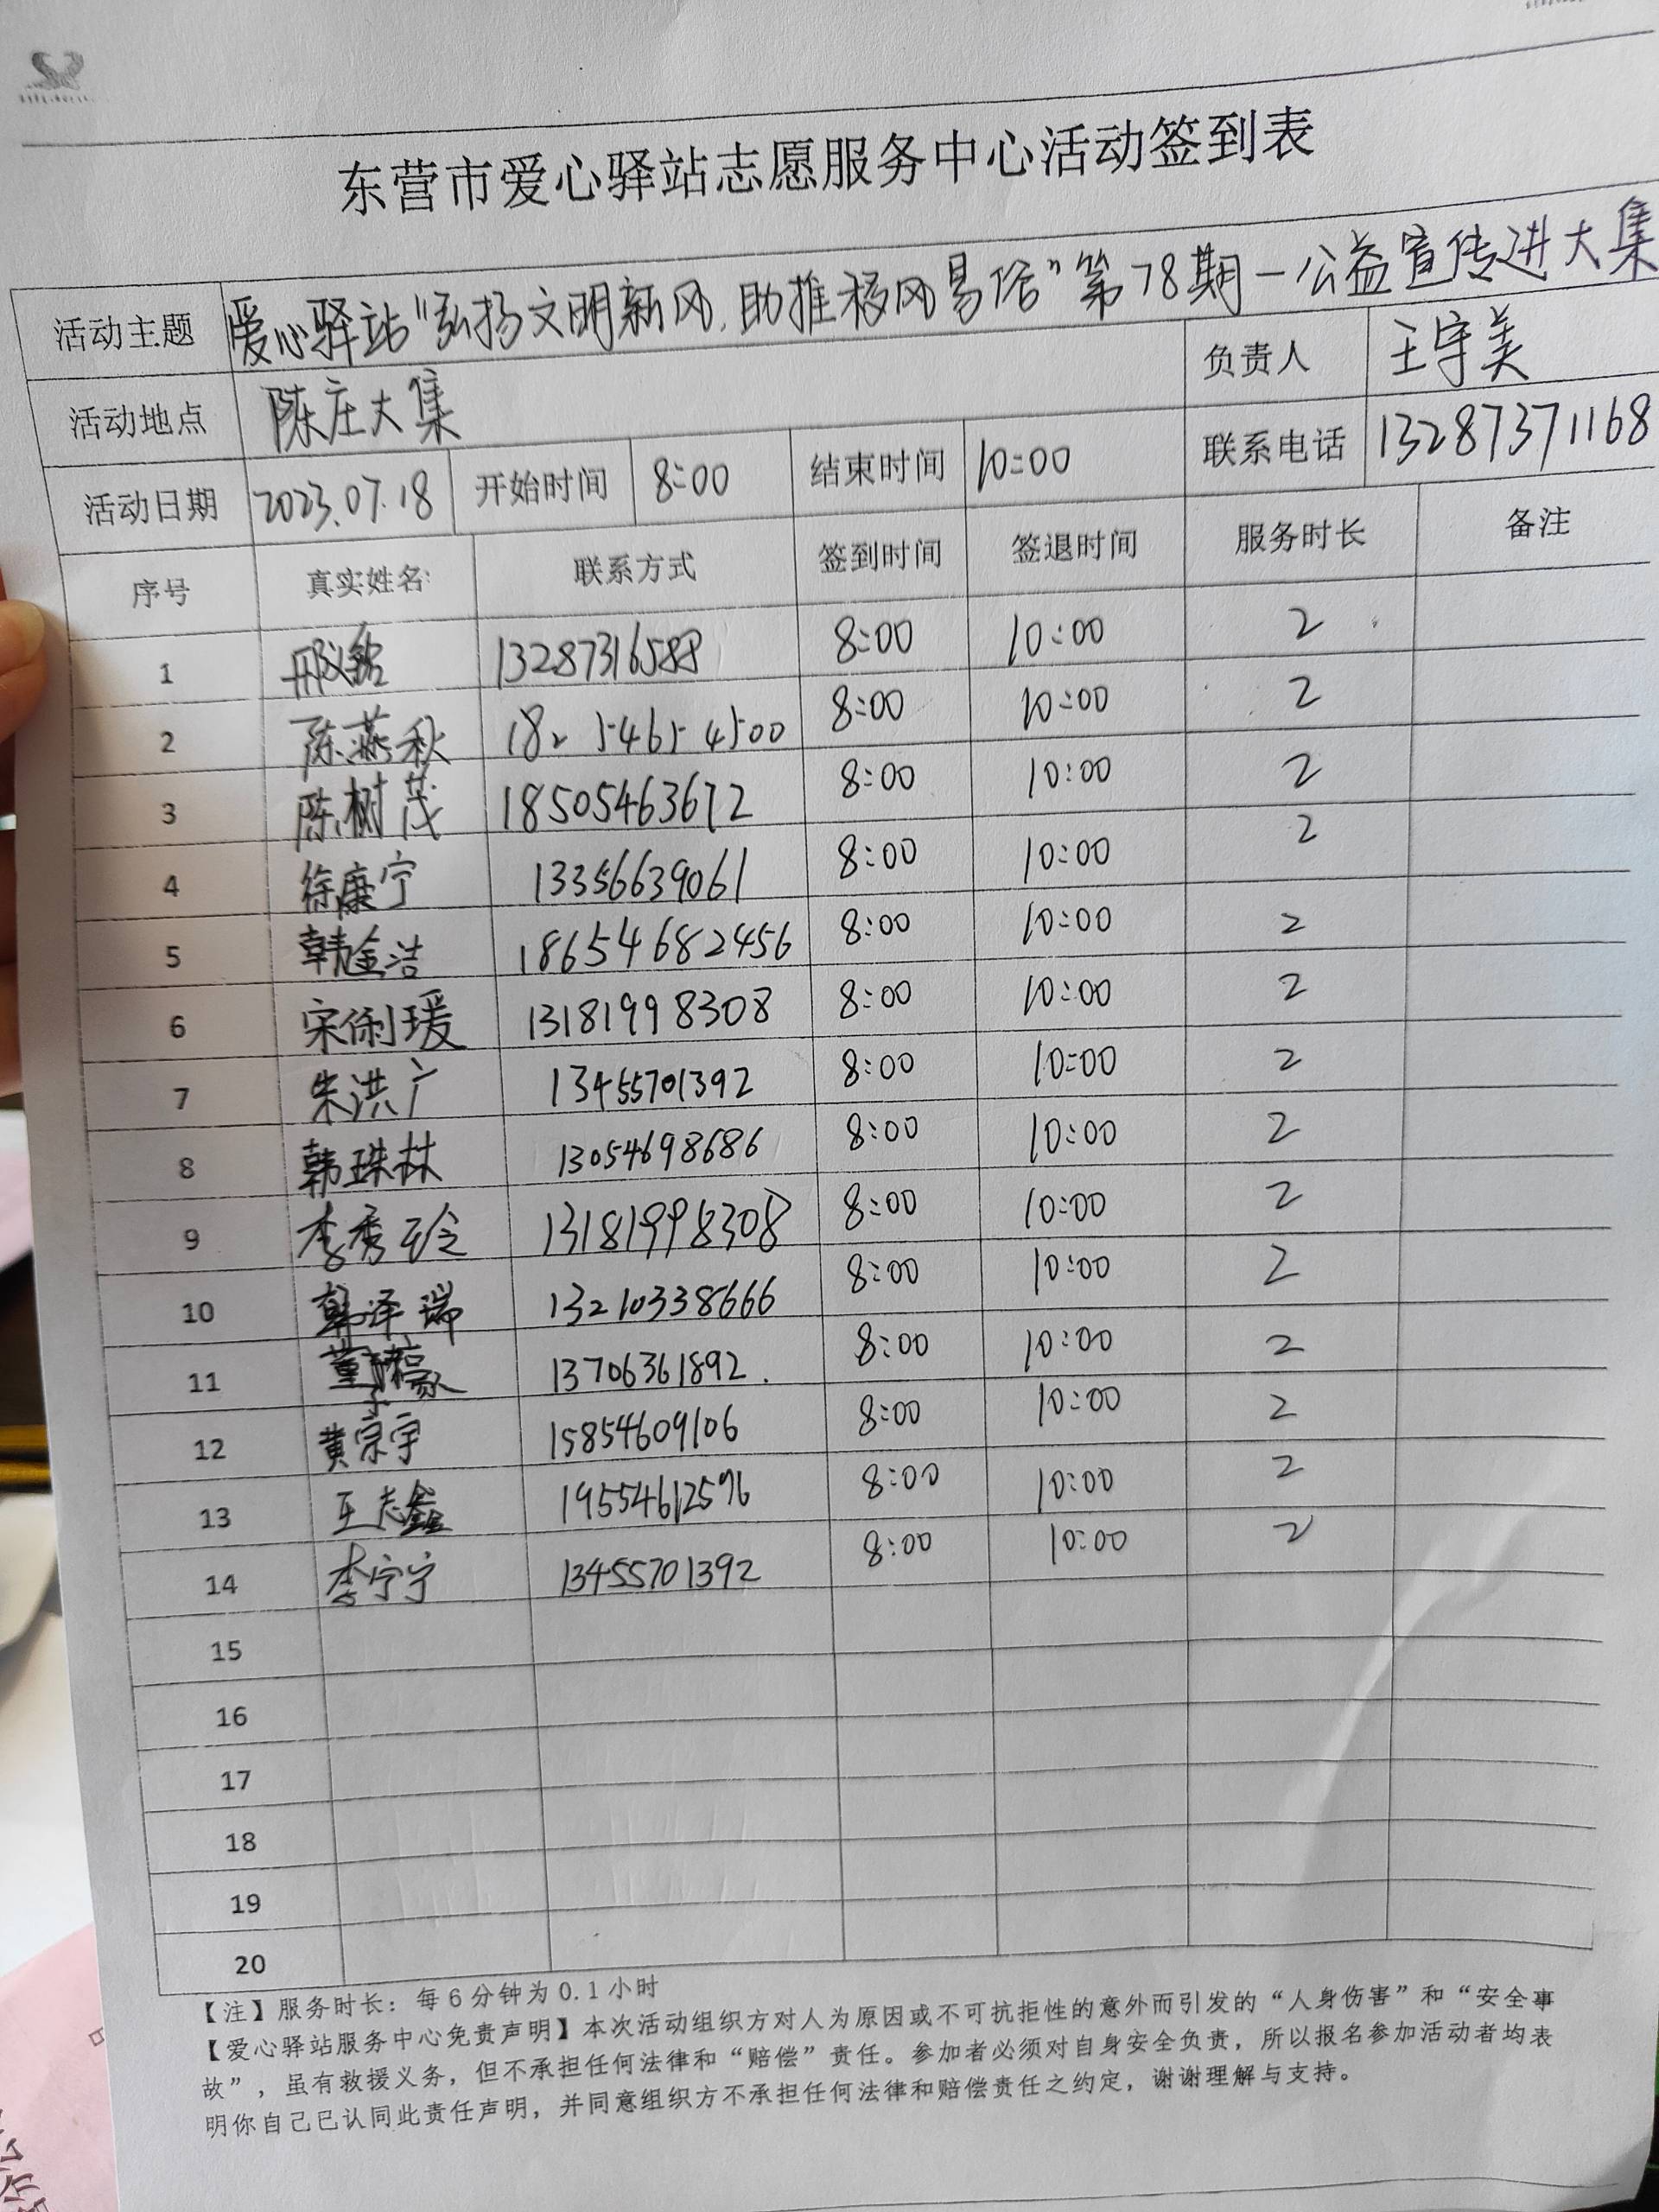 东营市爱心驿站志愿服务中心活动签到表
活动主题 爱心驿站“弘扬文明新风,助推移风易俗”第78期—公益宣传进大集
活动地点 陈庄大集 负责人 王守美
活动日期 2023.07.18 开始时间 8:00 结束时间 10:00 联系电话 13287371168
序号 真实姓名: 联系方式 签到时间 签退时间 服务时长 备注
1 8:00 10:00 2
2 陈燕秋 8:00 10:00 2
3 陈树茂 18505463672 8:00 10:00 2
4 徐康宁 13356639061 8:00 10:00 2
5 韩金洁 18654682456 8:00 10:00 2
6 宋俐瑗 13181998308 8:00 10:00 2
7 朱洪广 13455701392 8:00 10:00 2
8 韩珠林 13054698686 8:00 10:00 2
9 李秀玲 13181998308 8:00 10:00 2
10 韩泽瑞 13210338666 8:00 10:00 2
11 13706361892. 8:00 10:00 2
12 黄宗宇 15854609106 8:00 10:00 2
13 王志鑫 19554612576 8:00 10:00 2
14 李宁宁 13455701392 8:00 10:00 2
15
16
17
18
19
20
【注】服务时长：每6分钟为0.1小时
【爱心驿站服务中心免责声明】本次活动组织方对人为原因或不可抗拒性的意外而引发的“人身伤害”和“安全事
故”，虽有救援义务，但不承担任何法律和“赔偿”责任。参加者必须对自身安全负责，所以报名参加活动者均表
明你自己已认同此责任声明，并同意组织方不承担任何法律和赔偿责任之约定，谢谢理解与支持。